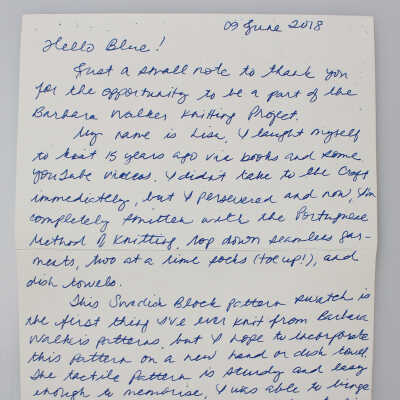 09 June 2018
Hello Blue!
Just a small note to thank you
for the opportunity to be a part of the
Barbara Walker Knitting Project.
My name is Lisa. I taught myself
to knit 15 years ago via books and some
YouTube videos. I didn't take to the craft
immediately, but I persevered and now, I'm
completely smitten with the Portuguese
Method of Knitting, top down seamless gar-
ments, two at a time socks (toe up!), and
dish towels.
This Swedish Block pattern swatch is
the first thing I've ever knit from Barbara
Walker's patterns, but I hope to incorporate
this pattern on a new hand or dish towel.
The tactile pattern is sturdy and easy
enough to memorise, I was able to binge